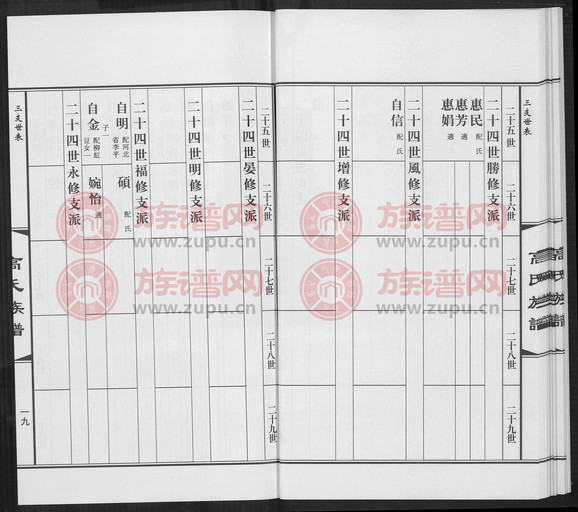 三支世表
高氏族譜
二十五世
二十六世
二十七世
二十八世
二十九世
二十四世勝修支派
惠民 配氏
惠芳 適
惠娟 適
二十四世風修支派
自信 配氏
二十四世增修支派
二十五世
二十六世
二十七世
二十八世
二十九世
二十四世晏修支派
二十四世明修支派
二十四世福修支派
自明 配河北省李平
子一
碩 配氏
自金 配柳紅豆女一
婉怡 適
二十四世永修支派
三支世表
高氏族譜
一九
族谱网
www.zupu.cn
族谱网
www.zupu.cn
族谱网
www.zupu.cn
族谱网
www.zupu.cn